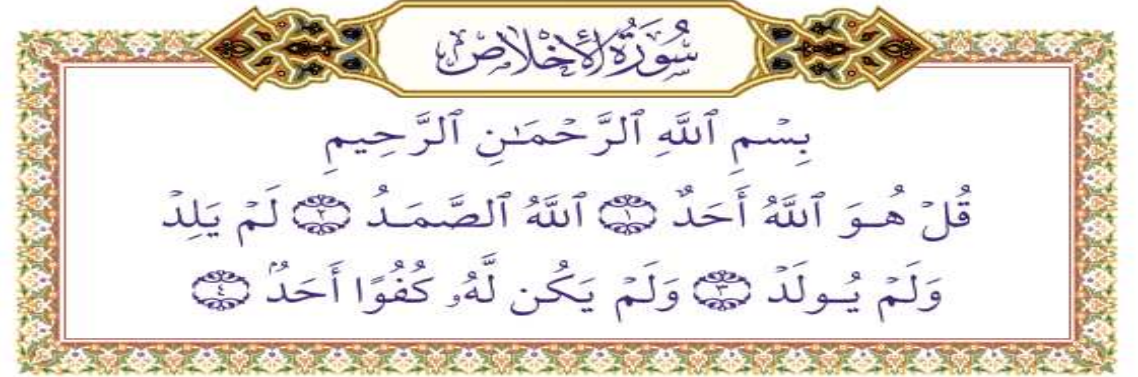 سُورَةُ الإِخْلَاصِ
بِسْمِ ٱللَّهِ ٱلرَّحْمَـٰنِ ٱلرَّحِيمِ
قُلْ هُـوَ ٱللَّهُ أَحَدٌ ١ ٱللَّهُ ٱلصَّمَـدُ ٢ لَمْ يَلِدْ
وَلَمْ يُـولَدْ ٣ وَلَمْ يَكُن لَّهُۥ كُفُوًا أَحَدٌۢ ٤